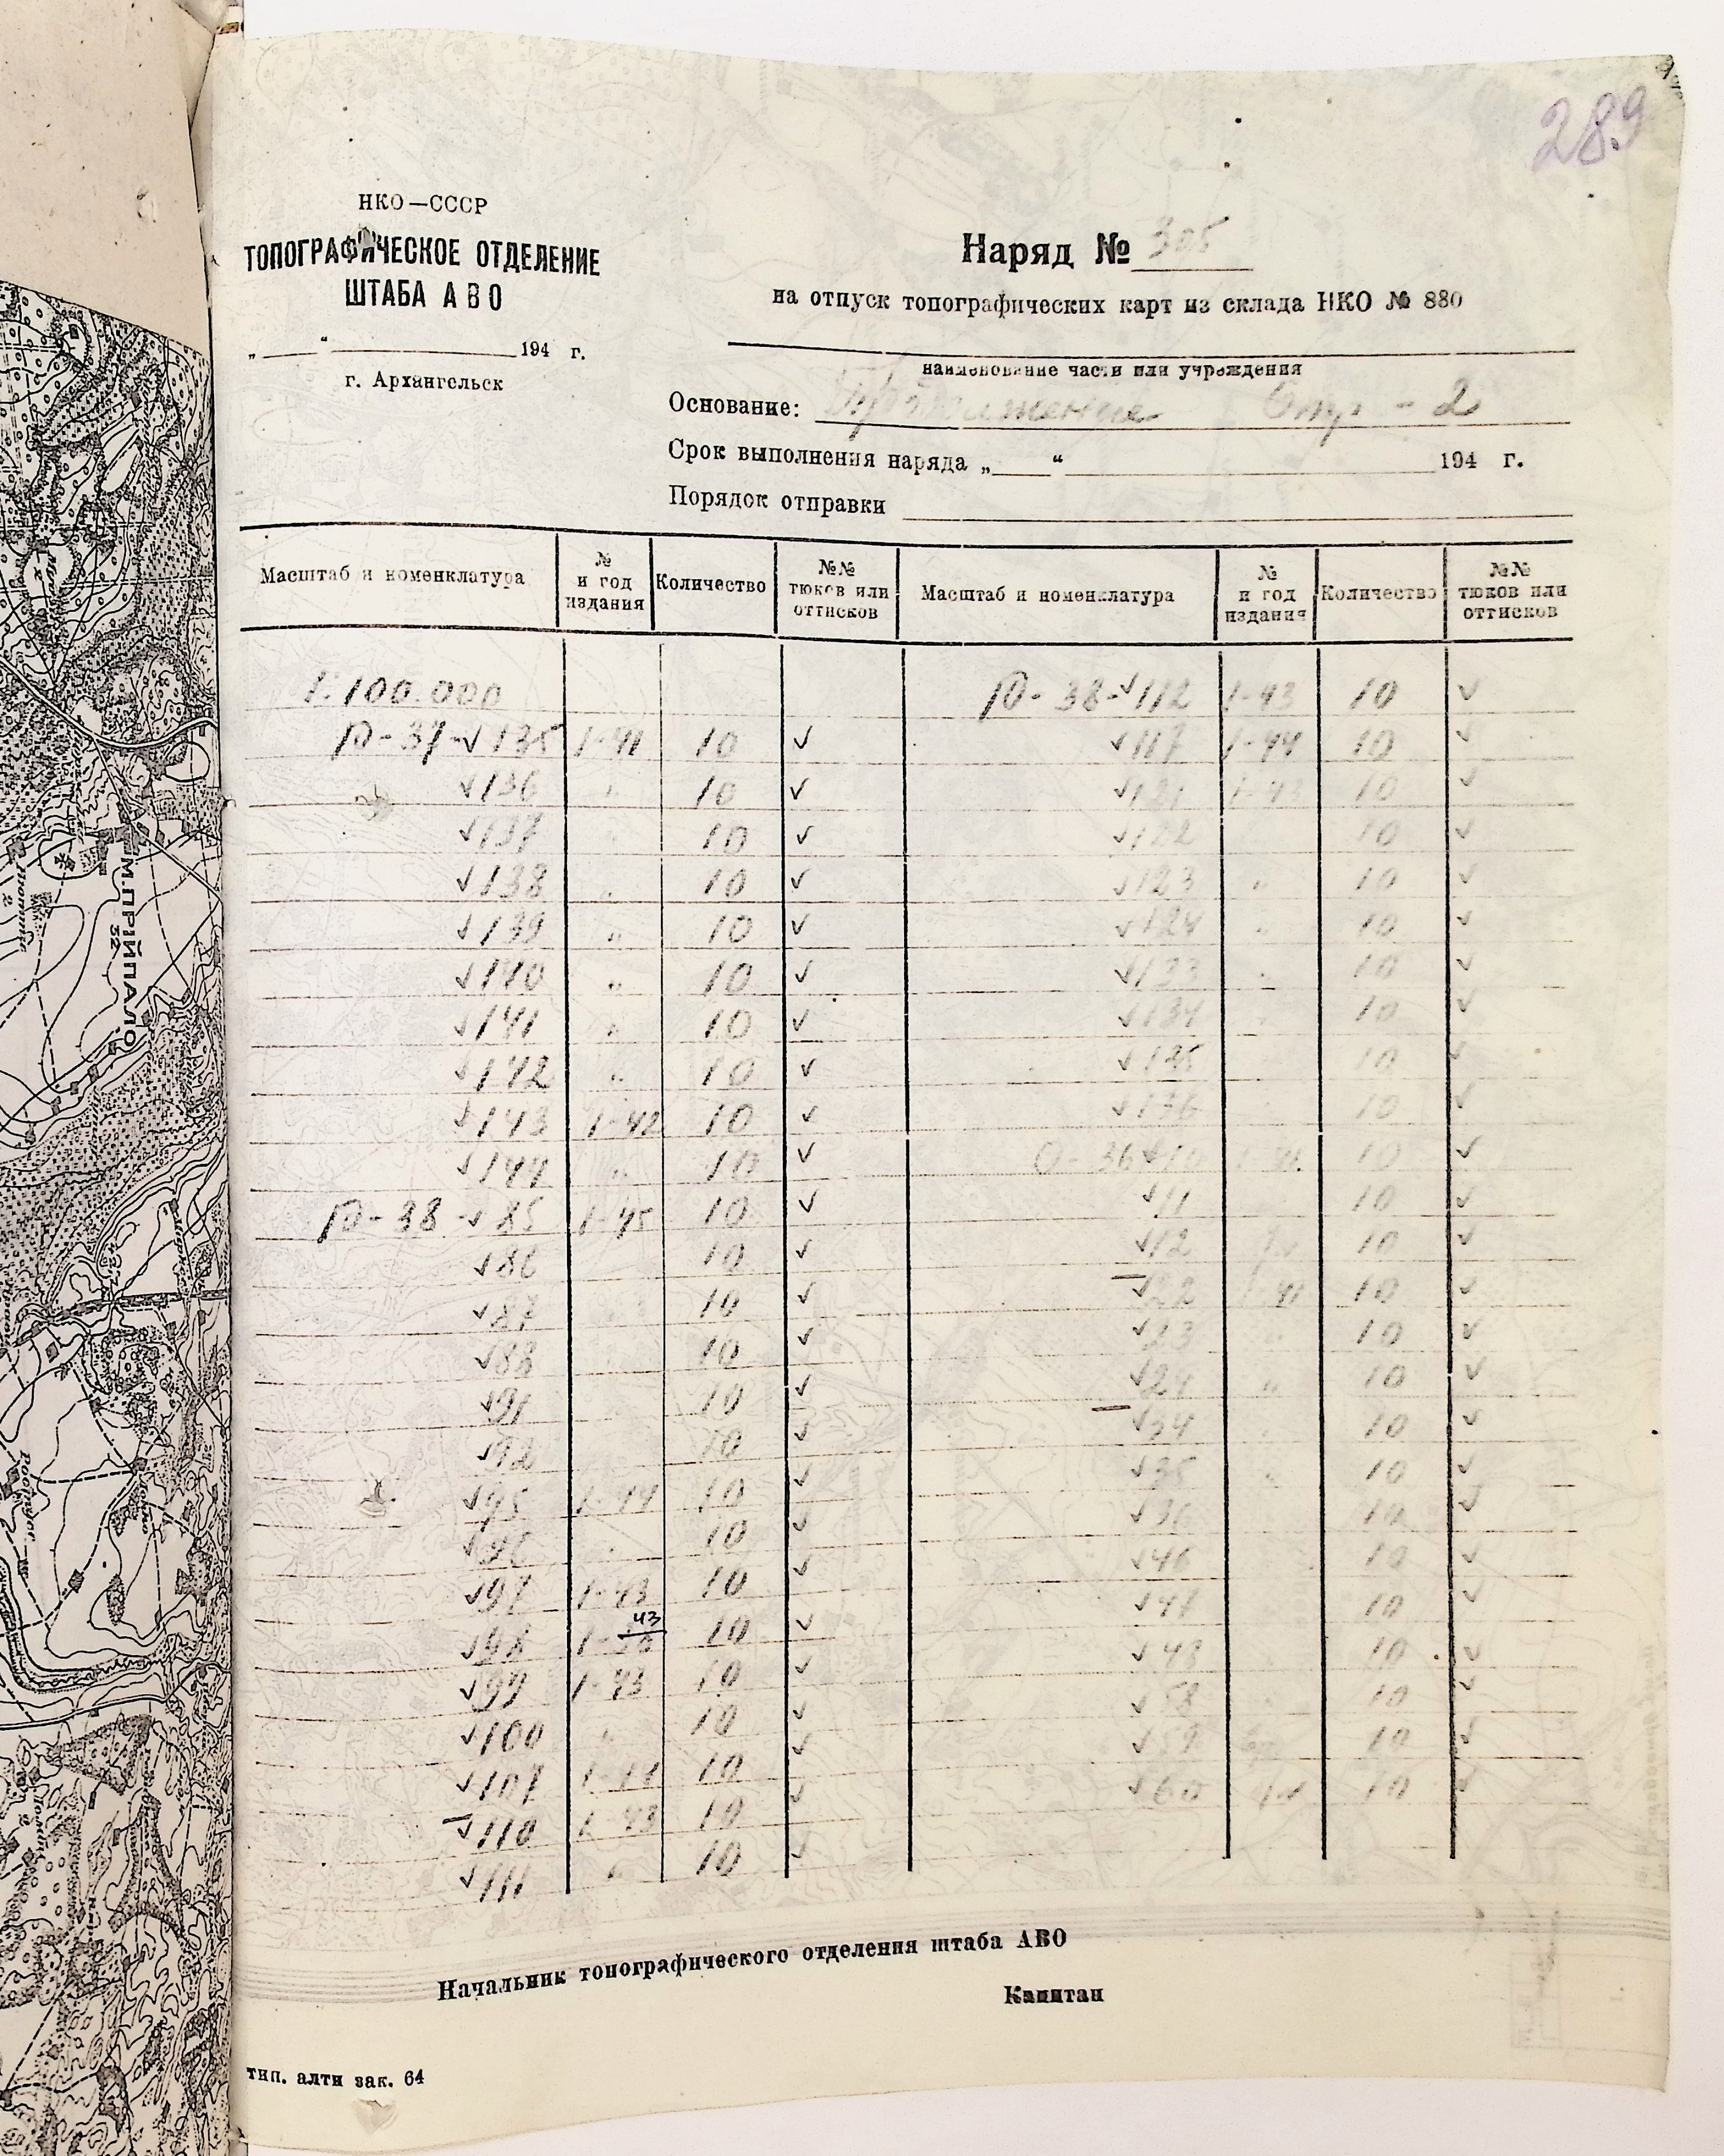 289
НКО—СССР
ТОПОГРАФИЧЕСКОЕ ОТДЕЛЕНИЕ
ШТАБА АВО
„ “ 194 г.
г. Архангельск
Наряд № 305
на отпуск топографических карт из склада НКО № 880
наименование части или учреждения
Основание: Продолжение Стр - 2
Срок выполнения наряда „ “ 194 г.
Порядок отправки
Масштаб и номенклатура № и год издания Количество №№ тюков или оттисков Масштаб и номенклатура № и год издания Количество №№ тюков или оттисков
1:100.000 Р-38-✓112 1-43 10 ✓
Р-37-✓135 1-41 10 ✓ ✓117 1-44 10 ✓
✓136 " 10 ✓ ✓121 1-43 10 ✓
✓137 " 10 ✓ ✓122 10 ✓
✓138 " 10 ✓ ✓123 " 10 ✓
✓139 " 10 ✓ ✓124 " 10 ✓
✓140 " 10 ✓ ✓133 " 10 ✓
✓141 " 10 ✓ ✓134 10 ✓
✓142 " 10 ✓ ✓135 10 ✓
✓143 1-42 10 ✓ ✓136 10 ✓
✓144 " 10 ✓ О-36-✓10 10 ✓
Р-38-✓85 1-45 10 ✓ ✓11 10 ✓
✓86 10 ✓ ✓12 10 ✓
✓87 10 ✓ ✓22 10 ✓
✓88 10 ✓ ✓23 10 ✓
✓91 10 ✓ ✓24 " 10 ✓
✓92 10 ✓ ✓34 10 ✓
✓95 1-44 10 ✓ ✓35 " 10 ✓
✓96 10 ✓ ✓36 10 ✓
✓97 1-43 10 ✓ ✓46 10 ✓
✓98 1- 43 10 ✓ ✓47 10 ✓
✓99 1-43 10 ✓ ✓48 10 ✓
✓100 " 10 ✓ ✓58 10 ✓
✓107 1-44 10 ✓ ✓59 10 ✓
✓110 1-43 10 ✓ ✓60 10 ✓
✓111 " 10 ✓
Начальник топографического отделения штаба АВО
Капитан
тип. алти зак. 64
М.ПРІЙПАЛО
32